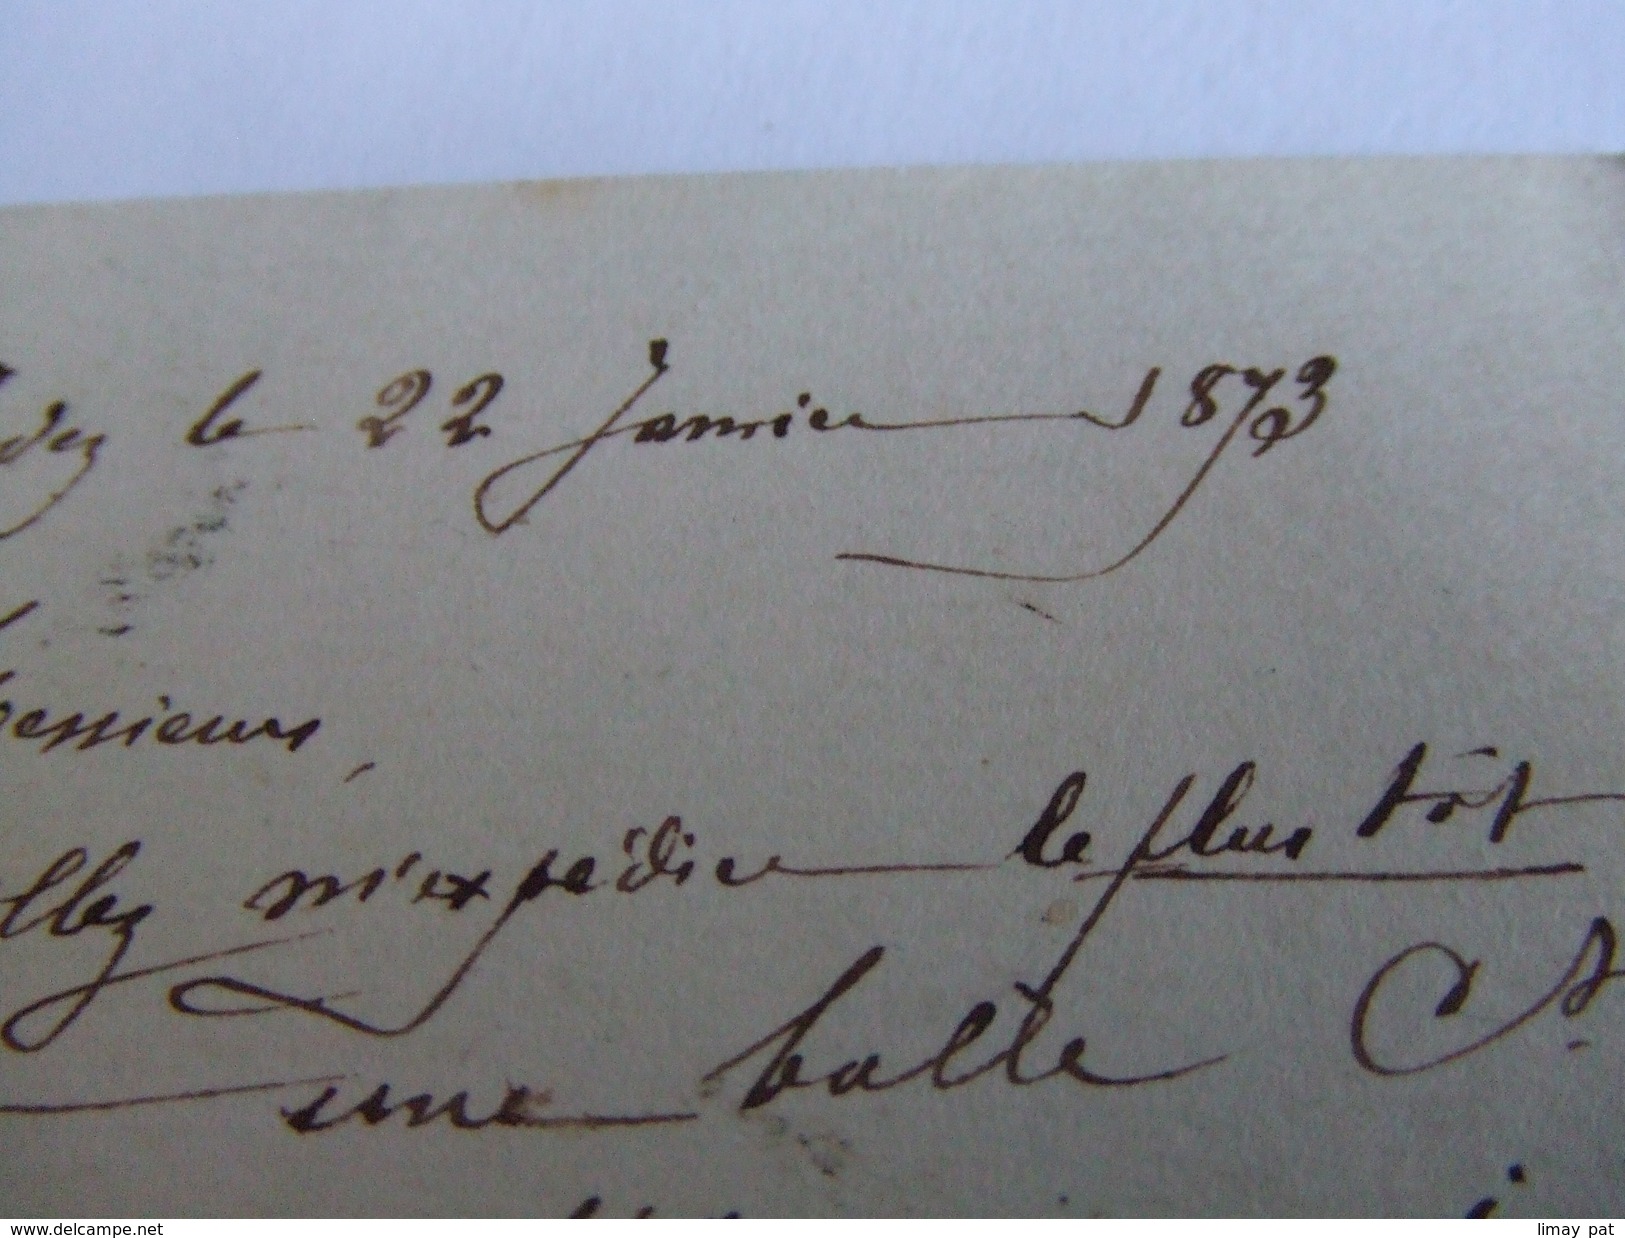 le 22 Janvier 1873
Messieurs,
m'expédier le plus tôt
une balle Ct
www.delcampe.net
limay pat